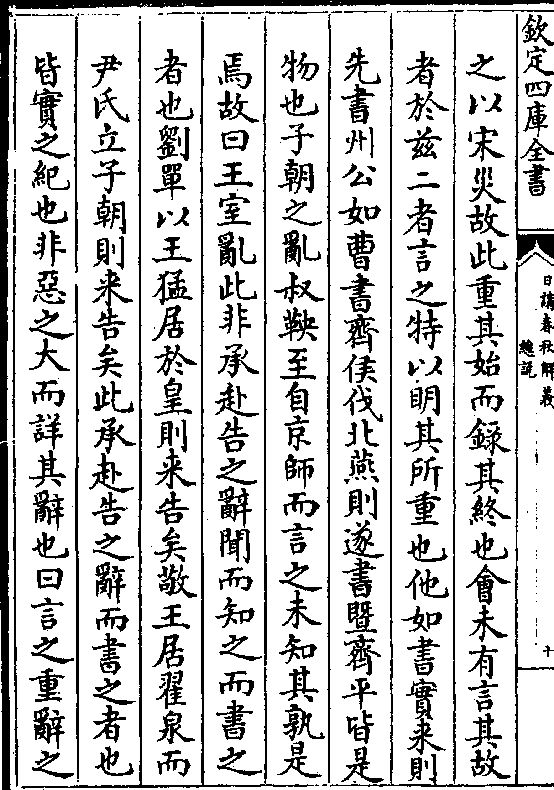 欽定四庫全書
日講春秋解義
總說
十
之以宋災故此重其始而録其終也會未有言其故
者於兹二者言之特以明其所重也他如書實来則
先書州公如曹書齊侯伐北燕則遂書暨齊平皆是
物也子朝之亂叔鞅至自京師而言之未知其孰是
焉故曰王室亂此非承赴告之辭聞而知之而書之
者也劉單以王猛居於皇則来告矣敬王居翟泉而
尹氏立子朝則来告矣此承赴告之辭而書之者也
皆實之紀也非惡之大而詳其辭也曰言之重辭之